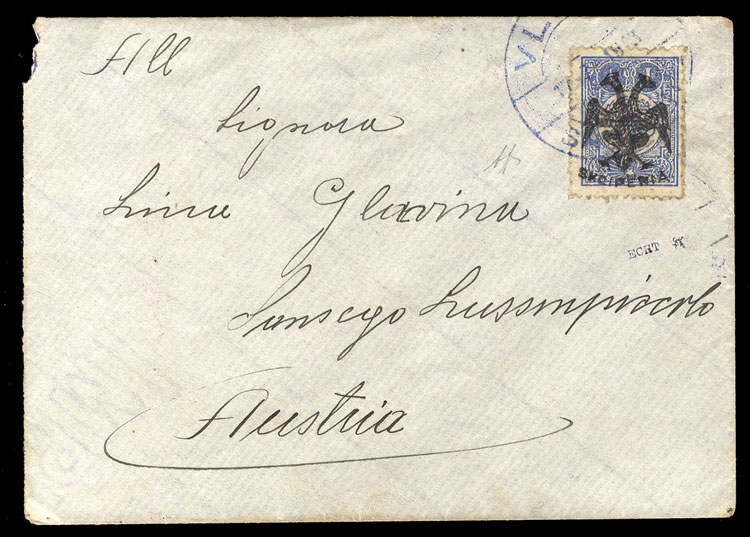 All
Signora
Lina Glavina
Sansego Lussinpiccolo
Austria
VL
1
SHQIPËNIA
ECHT